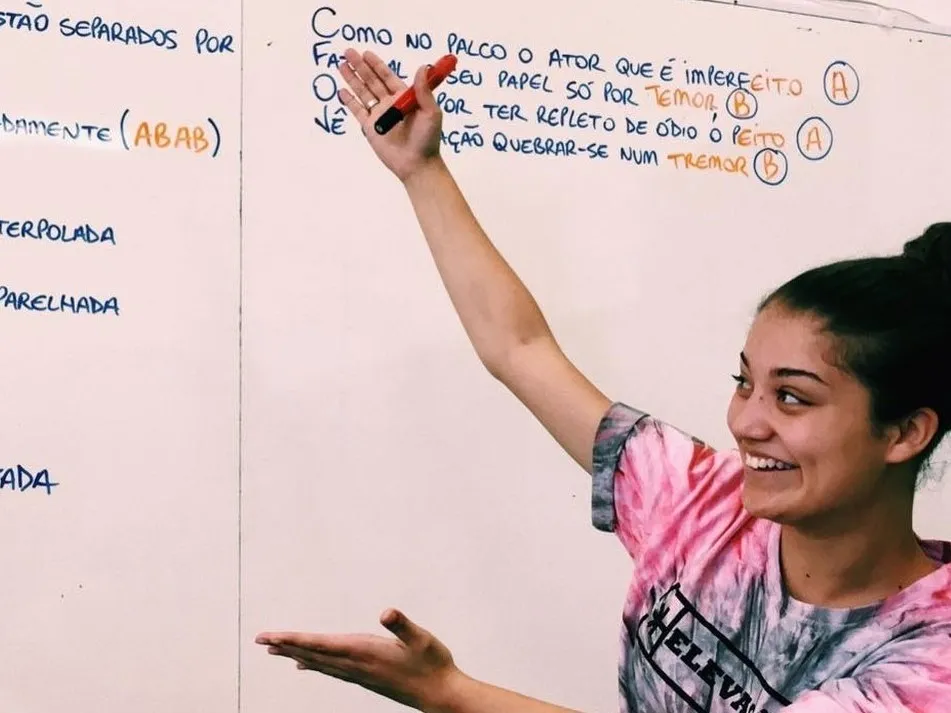 STÃO SEPARADOS POR
DAMENTE (ABAB)
TERPOLADA
PARELHADA
ADA
COMO NO PALCO O ATOR QUE É IMPERFEITO A
SEU PAPEL SÓ POR TEMOR B
POR TER REPLETO DE ÓDIO O PEITO A
VÊ AÇÃO QUEBRAR-SE NUM TREMOR B
ELEVA